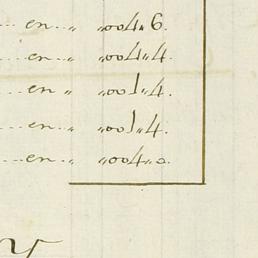 en „ „004„6.
en „ „004„4.
en „ „001„4.
en „ „001„4.
en „ „004„0.